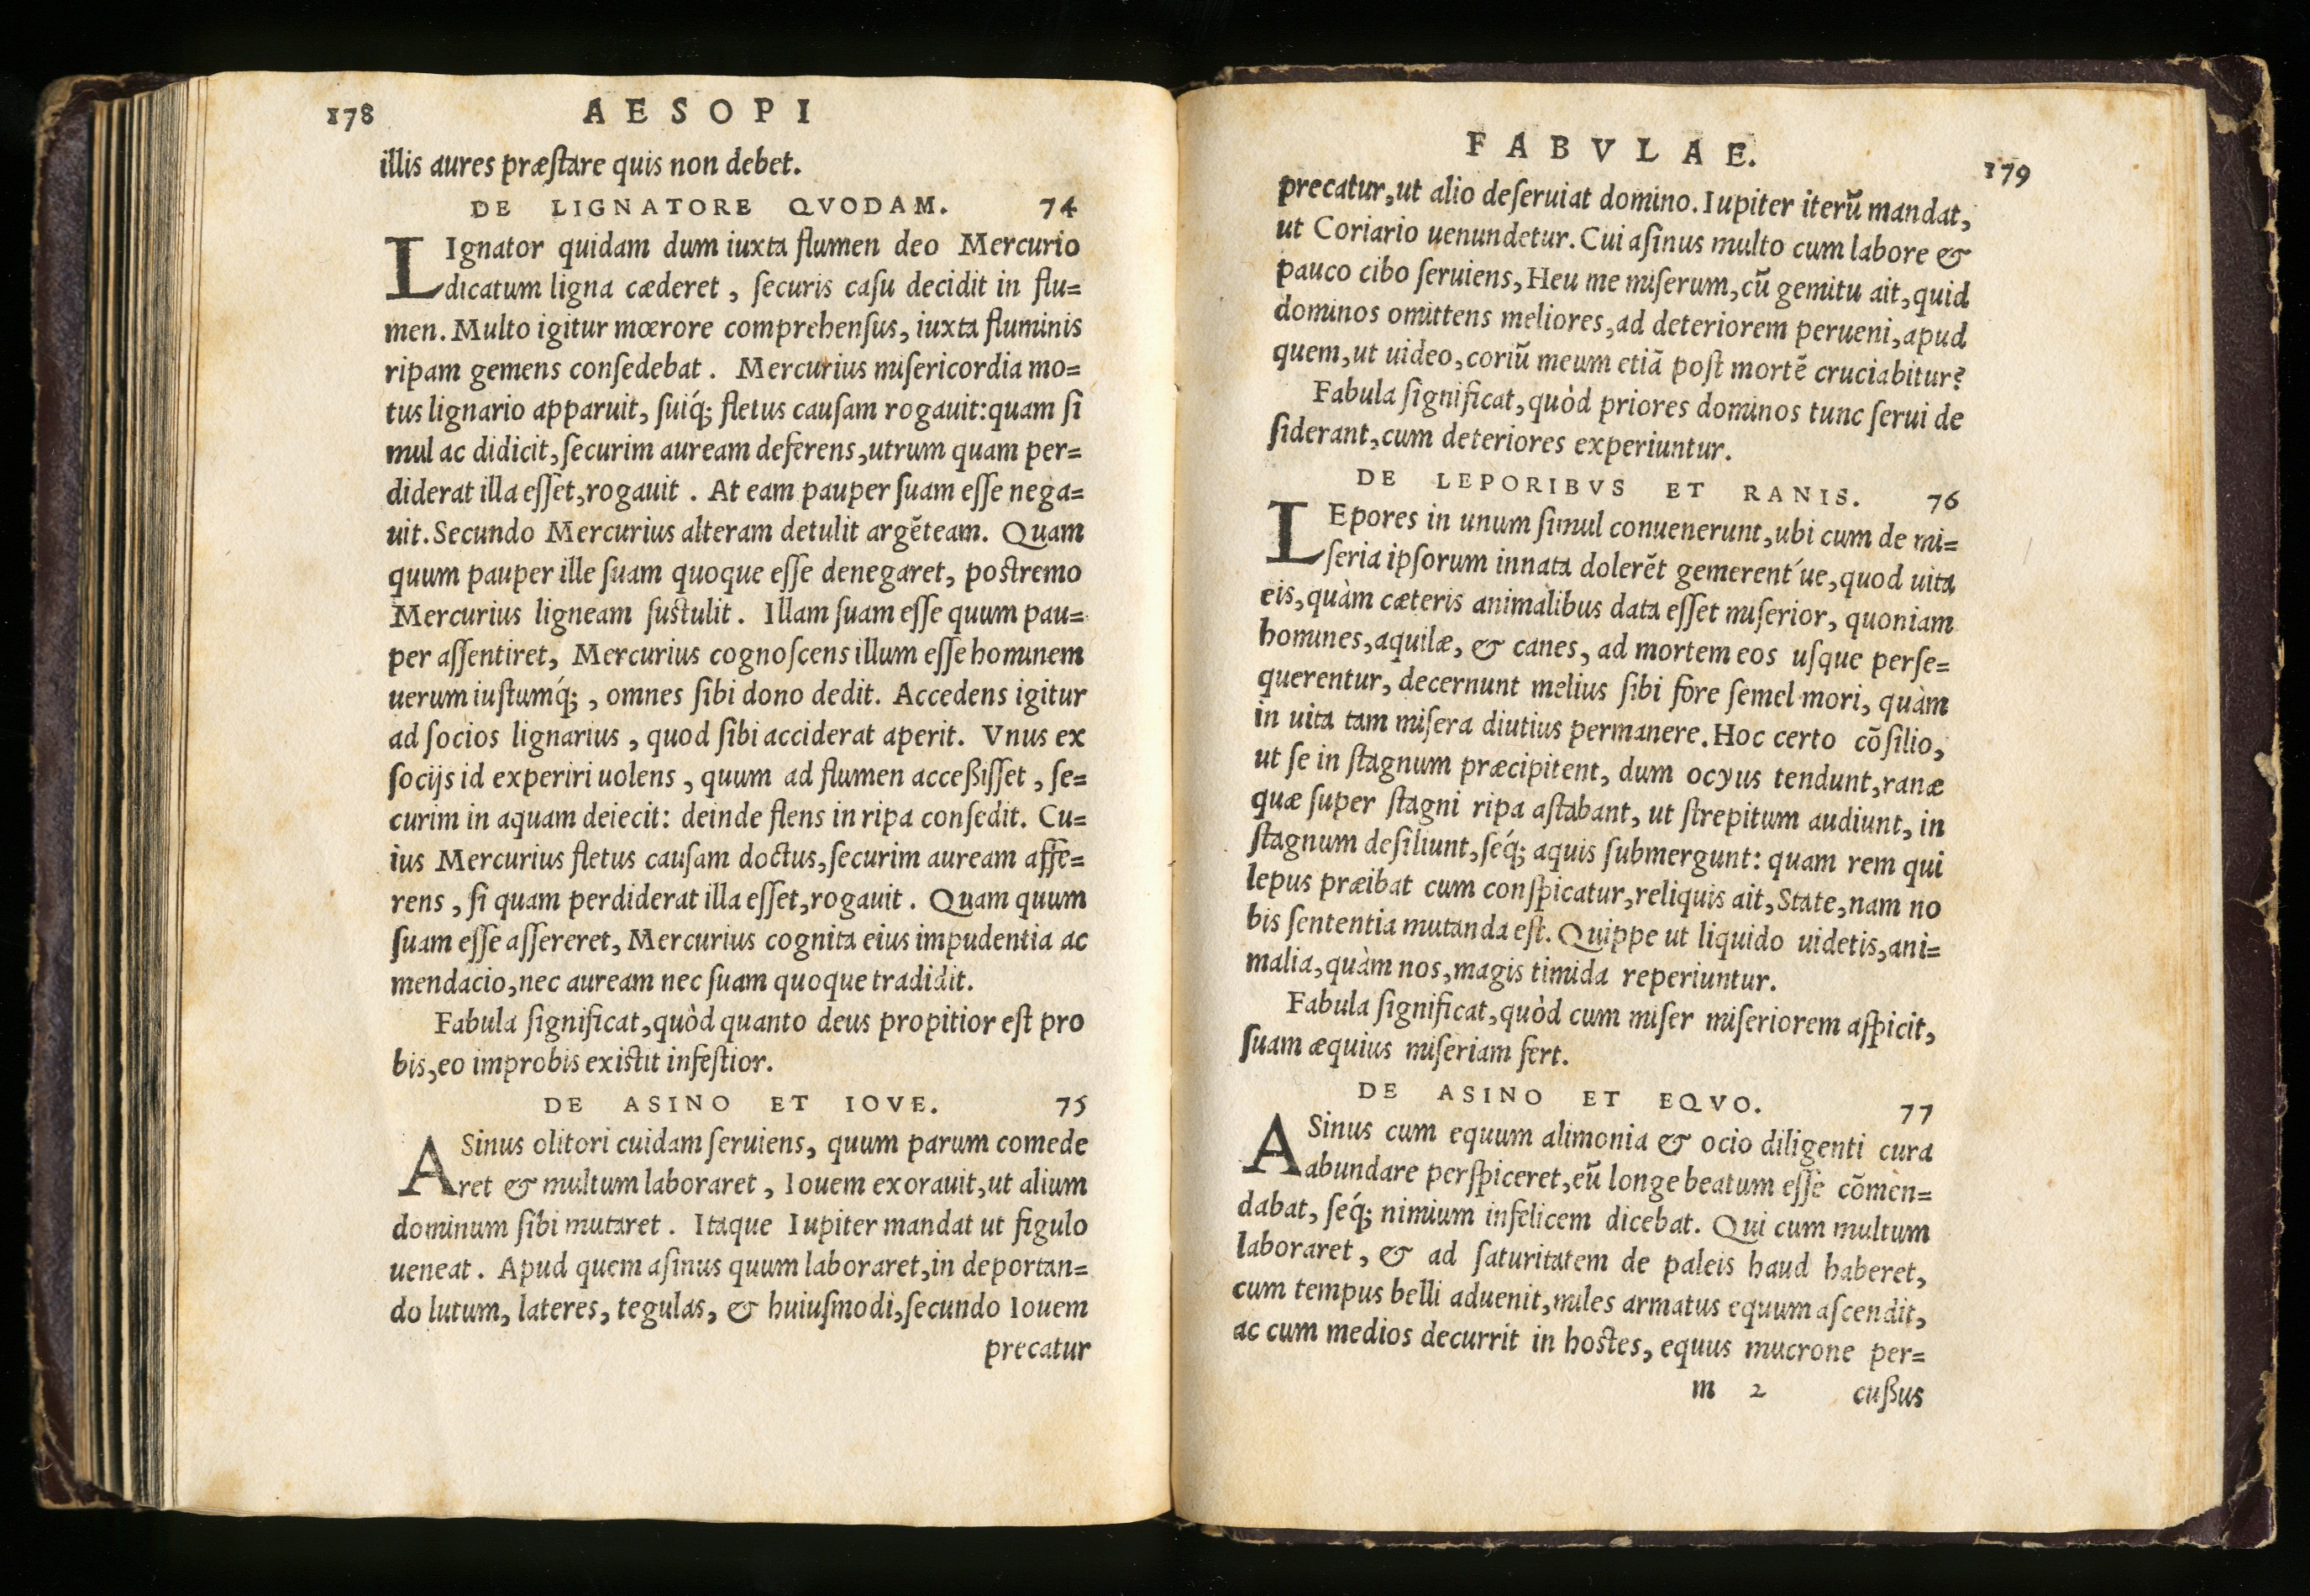 178
AESOPI
illis aures præſtare quis non debet.
DE LIGNATORE QVODAM. 74
LIgnator quidam dum iuxta flumen deo Mercurio
dicatum ligna cæderet, ſecuris caſu decidit in flu=
men. Multo igitur mœrore comprehenſus, iuxta fluminis
ripam gemens conſedebat. Mercurius miſericordia mo=
tus lignario apparuit, ſuiq́; fletus cauſam rogauit: quam ſi
mul ac didicit, ſecurim auream deferens, utrum quam per=
diderat illa eſſet, rogauit. At eam pauper ſuam eſſe nega=
uit. Secundo Mercurius alteram detulit argẽteam. Quam
quum pauper ille ſuam quoque eſſe denegaret, poſtremo
Mercurius ligneam ſuſtulit. Illam ſuam eſſe quum pau=
per aſſentiret, Mercurius cognoſcens illum eſſe hominem
uerum iuſtumq́;, omnes ſibi dono dedit. Accedens igitur
ad ſocios lignarius, quod ſibi acciderat aperit. Vnus ex
ſocijs id experiri uolens, quum ad flumen acceßiſſet, ſe=
curim in aquam deiecit: deinde flens in ripa conſedit. Cu=
ius Mercurius fletus cauſam doctus, ſecurim auream affe=
rens, ſi quam perdiderat illa eſſet, rogauit. Quam quum
ſuam eſſe aſſereret, Mercurius cognita eius impudentia ac
mendacio, nec auream nec ſuam quoque tradidit.
Fabula ſignificat, quòd quanto deus propitior eſt pro
bis, eo improbis exiſtit infeſtior.
DE ASINO ET IOVE. 75
ASinus olitori cuidam ſeruiens, quum parum comede
ret & multum laboraret, Iouem exorauit, ut alium
dominum ſibi mutaret. Itaque Iupiter mandat ut figulo
ueneat. Apud quem aſinus quum laboraret, in deportan=
do lutum, lateres, tegulas, & huiuſmodi, ſecundo Iouem
precatur
FABVLAE.
179
precatur, ut alio deſeruiat domino. Iupiter iterũ mandat,
ut Coriario uenundetur. Cui aſinus multo cum labore &
pauco cibo ſeruiens, Heu me miſerum, cũ gemitu ait, quid
dominos omittens meliores, ad deteriorem perueni, apud
quem, ut uideo, coriũ meum etiã poſt mortẽ cruciabitur?
Fabula ſignificat, quòd priores dominos tunc ſerui de
ſiderant, cum deteriores experiuntur.
DE LEPORIBVS ET RANIS. 76
LEpores in unum ſimul conuenerunt, ubi cum de mi=
ſeria ipſorum innata dolerẽt gemerent´ue, quod uita
eis, quàm cæteris animalibus data eſſet miſerior, quoniam
homines, aquilæ, & canes, ad mortem eos uſque perſe=
querentur, decernunt melius ſibi fore ſemel mori, quàm
in uita tam miſera diutius permanere. Hoc certo cõſilio,
ut ſe in ſtagnum præcipitent, dum ocyus tendunt, ranæ
quæ ſuper ſtagni ripa aſtabant, ut ſtrepitum audiunt, in
ſtagnum deſiliunt, ſéq́; aquis ſubmergunt: quam rem qui
lepus præibat cum conſpicatur, reliquis ait, State, nam no
bis ſententia mutanda eſt. Quippe ut liquido uidetis, ani=
malia, quàm nos, magis timida reperiuntur.
Fabula ſignificat, quòd cum miſer miſeriorem aſpicit,
ſuam æquius miſeriam fert.
DE ASINO ET EQVO. 77
ASinus cum equum alimonia & ocio diligenti cura
abundare perſpiceret, eũ longe beatum eſſe cõmen=
dabat, ſéq́; nimium infelicem dicebat. Qui cum multum
laboraret, & ad ſaturitatem de paleis haud haberet,
cum tempus belli aduenit, miles armatus equum aſcendit,
ac cum medios decurrit in hoſtes, equus mucrone per=
m 2 cußus